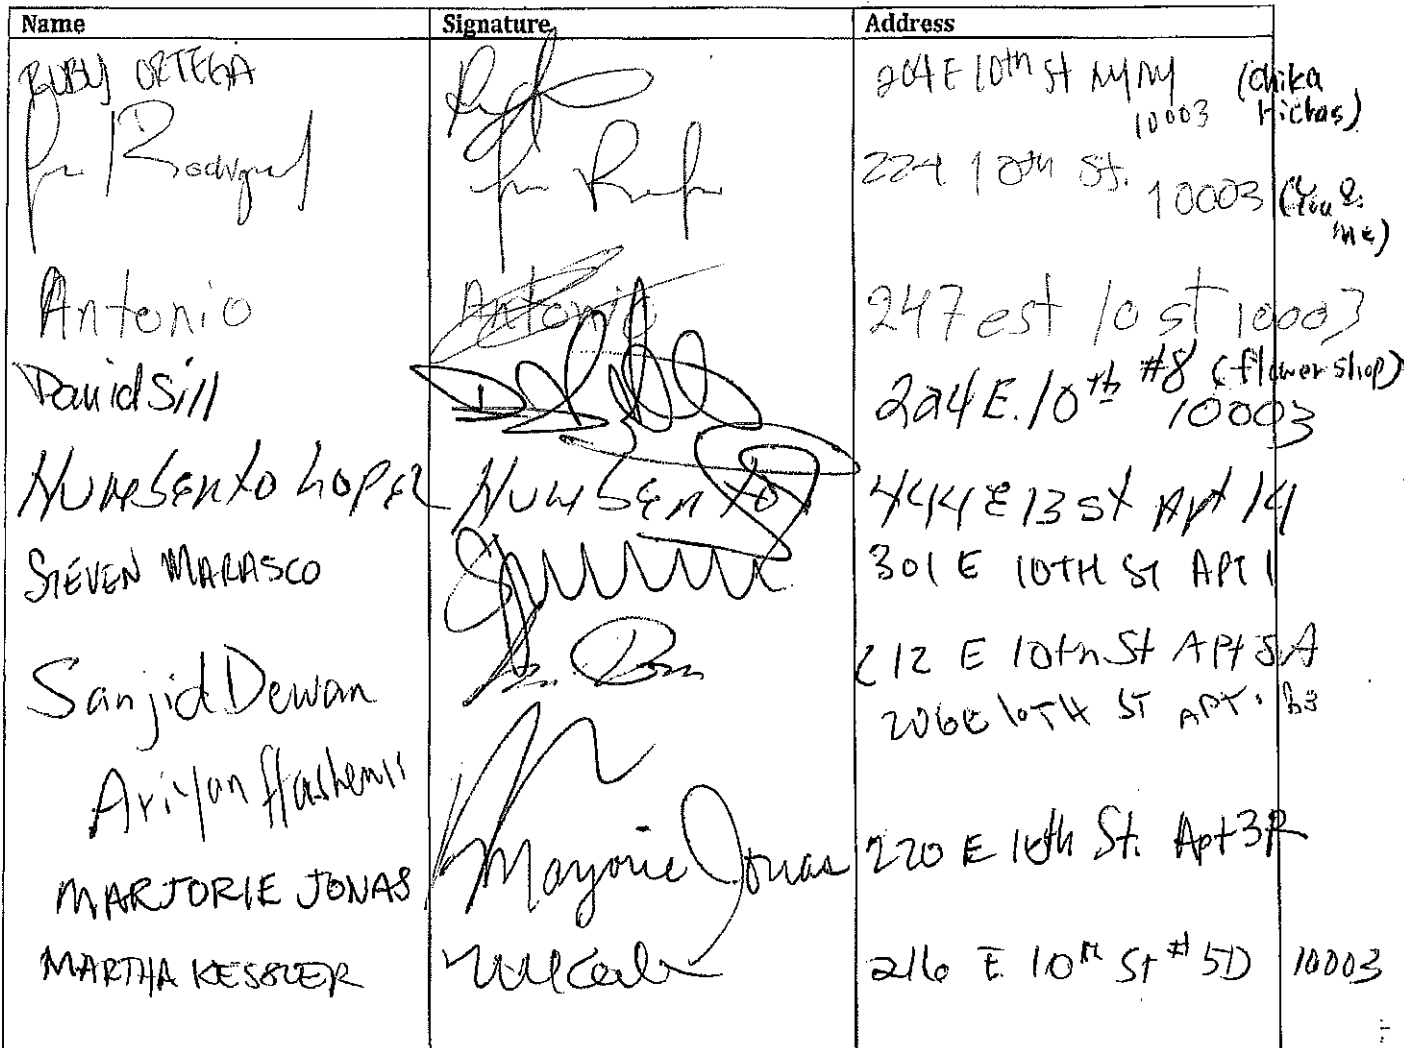 Name Signature Address
RUBY ORTEGA 204 E 10th st NY NY (Chika
10003
224 10th St.
10003 (You &
me)
Antonio Antonio 247 est 10 st 10003
David Sill 224 E. 10th #8 (flower shop)
10003
Humberto Lopez Humberto 444 E 13 st Apt 14
STEVEN MARASCO 301 E 10TH ST APT 1
Sanjid Dewan 212 E 10th St Apt 5A
Ariyan Hashemi 206 E 10TH ST APT. B3
MARJORIE JONAS Marjorie Jonas 220 E 10th St. Apt 3R
MARTHA KESSLER 216 E 10th St # 5D 10003